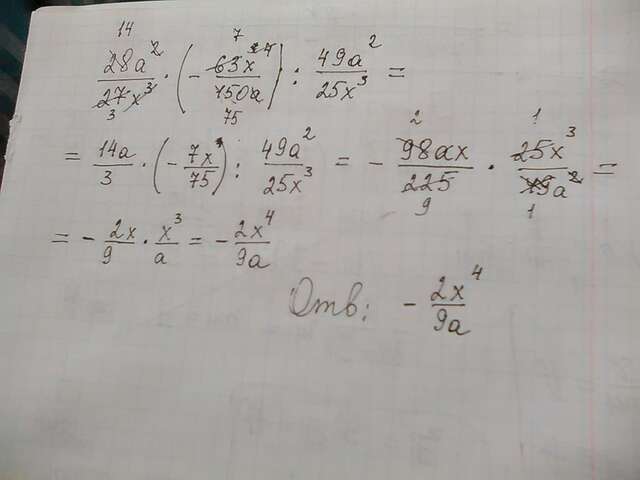 14 7
28a² / 27x³ · (- 63x⁴ / 150a) : 49a² / 25x³ =
3 75
= 14a / 3 · (- 7x / 75) : 49a² / 25x³ = - 98ax / 225 · 25x³ / 49a² =
2 1
9 1
= - 2x / 9 · x³ / a = - 2x⁴ / 9a
Отв: - 2x⁴ / 9a